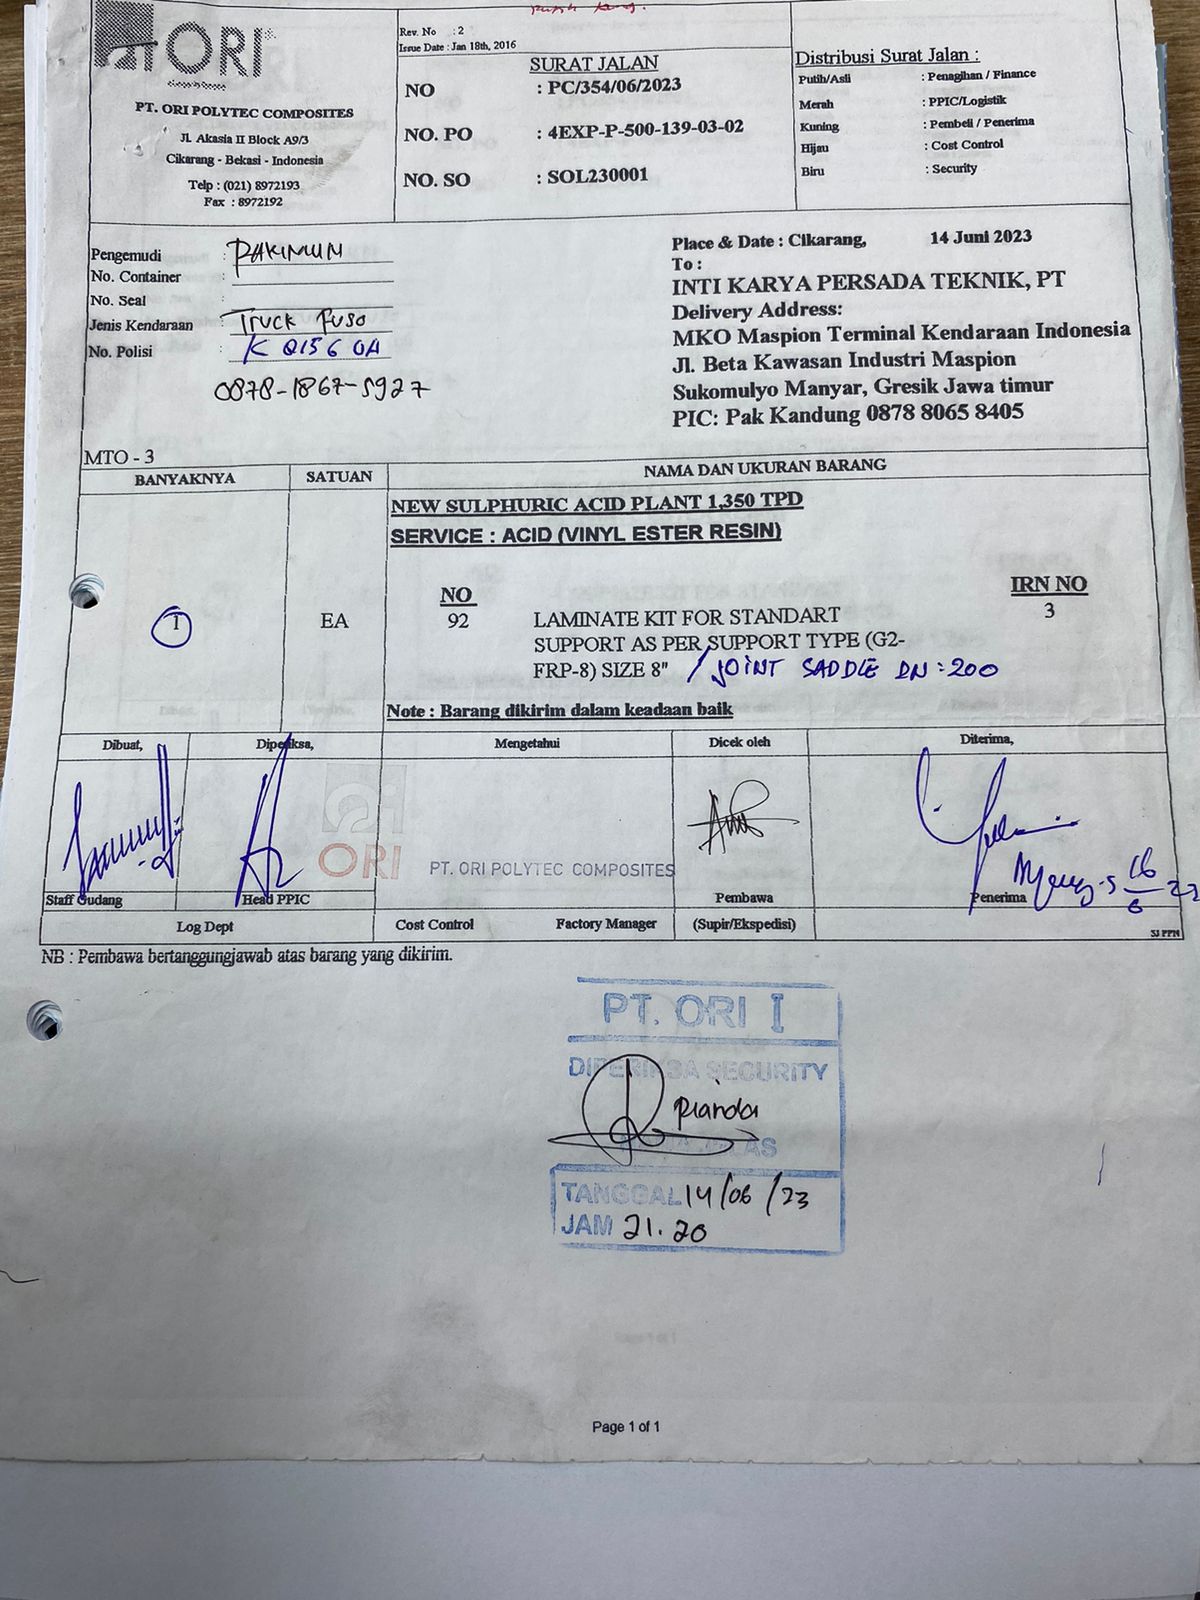 ORI
PT. ORI POLYTEC COMPOSITES
Jl. Akasia II Block A9/3
Cikarang - Bekasi - Indonesia
Telp : (021) 8972193
Fax : 8972192
Rev. No : 2
Issue Date : Jan 18th, 2016
SURAT JALAN
NO : PC/354/06/2023
NO. PO : 4EXP-P-500-139-03-02
NO. SO : SOL230001
Distribusi Surat Jalan :
Putih/Asli : Penagihan / Finance
Merah : PPIC/Logistik
Kuning : Pembeli / Penerima
Hijau : Cost Control
Biru : Security
Pengemudi :
No. Container :
No. Seal :
Jenis Kendaraan : Truck Fuso
No. Polisi :
0878-1867-5927
Place & Date : Cikarang, 14 Juni 2023
To :
INTI KARYA PERSADA TEKNIK, PT
Delivery Address:
MKO Maspion Terminal Kendaraan Indonesia
Jl. Beta Kawasan Industri Maspion
Sukomulyo Manyar, Gresik Jawa timur
PIC: Pak Kandung 0878 8065 8405
MTO - 3
BANYAKNYA SATUAN NAMA DAN UKURAN BARANG
NEW SULPHURIC ACID PLANT 1,350 TPD
SERVICE : ACID (VINYL ESTER RESIN)
NO IRN NO
1 EA 92 LAMINATE KIT FOR STANDART 3
SUPPORT AS PER SUPPORT TYPE (G2-
FRP-8) SIZE 8" / JOINT SADDLE DN : 200
Note : Barang dikirim dalam keadaan baik
Dibuat, Diperiksa, Mengetahui Dicek oleh Diterima,
ORI PT. ORI POLYTEC COMPOSITES
16/6 23
Staff Gudang Head PPIC Pembawa Penerima
Log Dept Cost Control Factory Manager (Supir/Ekspedisi)
SJ PPN
NB : Pembawa bertanggungjawab atas barang yang dikirim.
PT. ORI I
DIPERIKSA SECURITY
Rianda
TANGGAL 14/06/23
JAM 21.20
Page 1 of 1